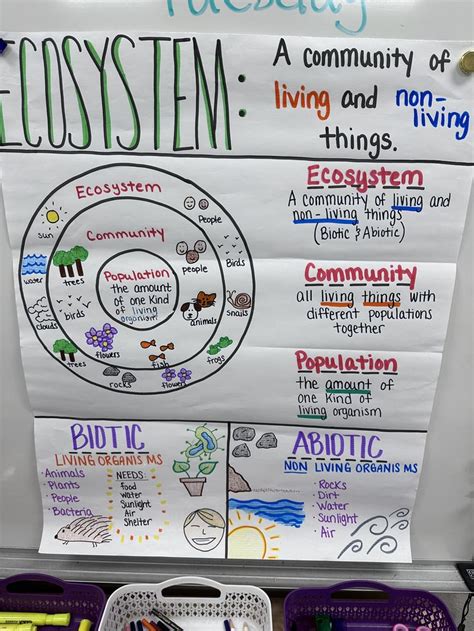 Tuesday
ECOSYSTEM:
A community of
living and non-
living
things.
Ecosystem
Community
Population
the amount
of one kind
of living
organism
sun
water
clouds
trees
birds
trees
flowers
rocks
fish
flowers
frogs
animals
snails
Birds
people
People
Ecosystem
A community of living and
non-living things
(Biotic & Abiotic)
Community
all living things with
different populations
together
Population
the amount of
one kind of
living organism
BIOTIC
LIVING ORGANISMS
· Animals
· Plants
· People
· Bacteria
NEEDS:
food
water
Sunlight
Air
Shelter
ABIOTIC
NON LIVING ORGANISMS
· Rocks
· Dirt
· Water
· Sunlight
· Air